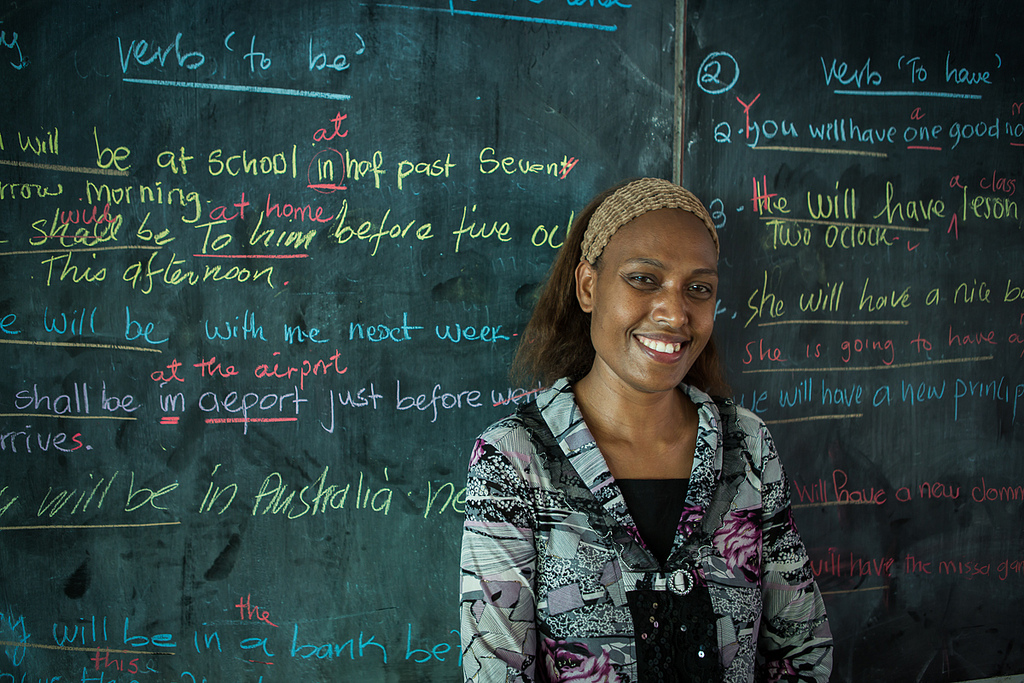 verb 'to be'
will be at school in haf past Seven
at
morning.
shall be To him before five
will at home
This afternoon.
will be with me next week.
at the airport
shall be in aeport just before
rrives.
will be in Australia
the
will be in a bank be?
this
② Verb 'To have'
a
2. you will have one good
Y
3. He will have leson
a class
Two oclock.
she will have a nice
she is going to have a
will have a new
will have a new
will have the missa